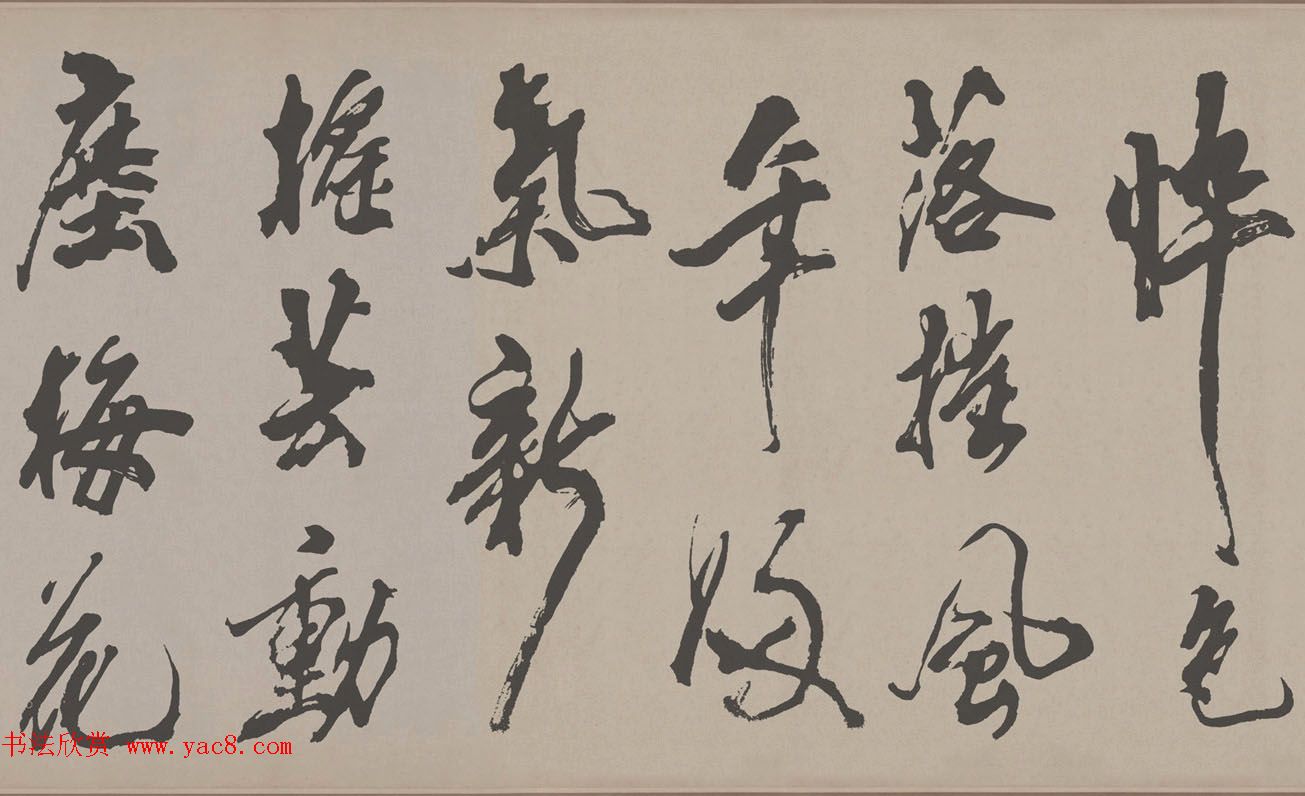 悴色
落摧風
年歸
氣新
搖芸動
塵梅花
书法欣赏 www.yac8.com